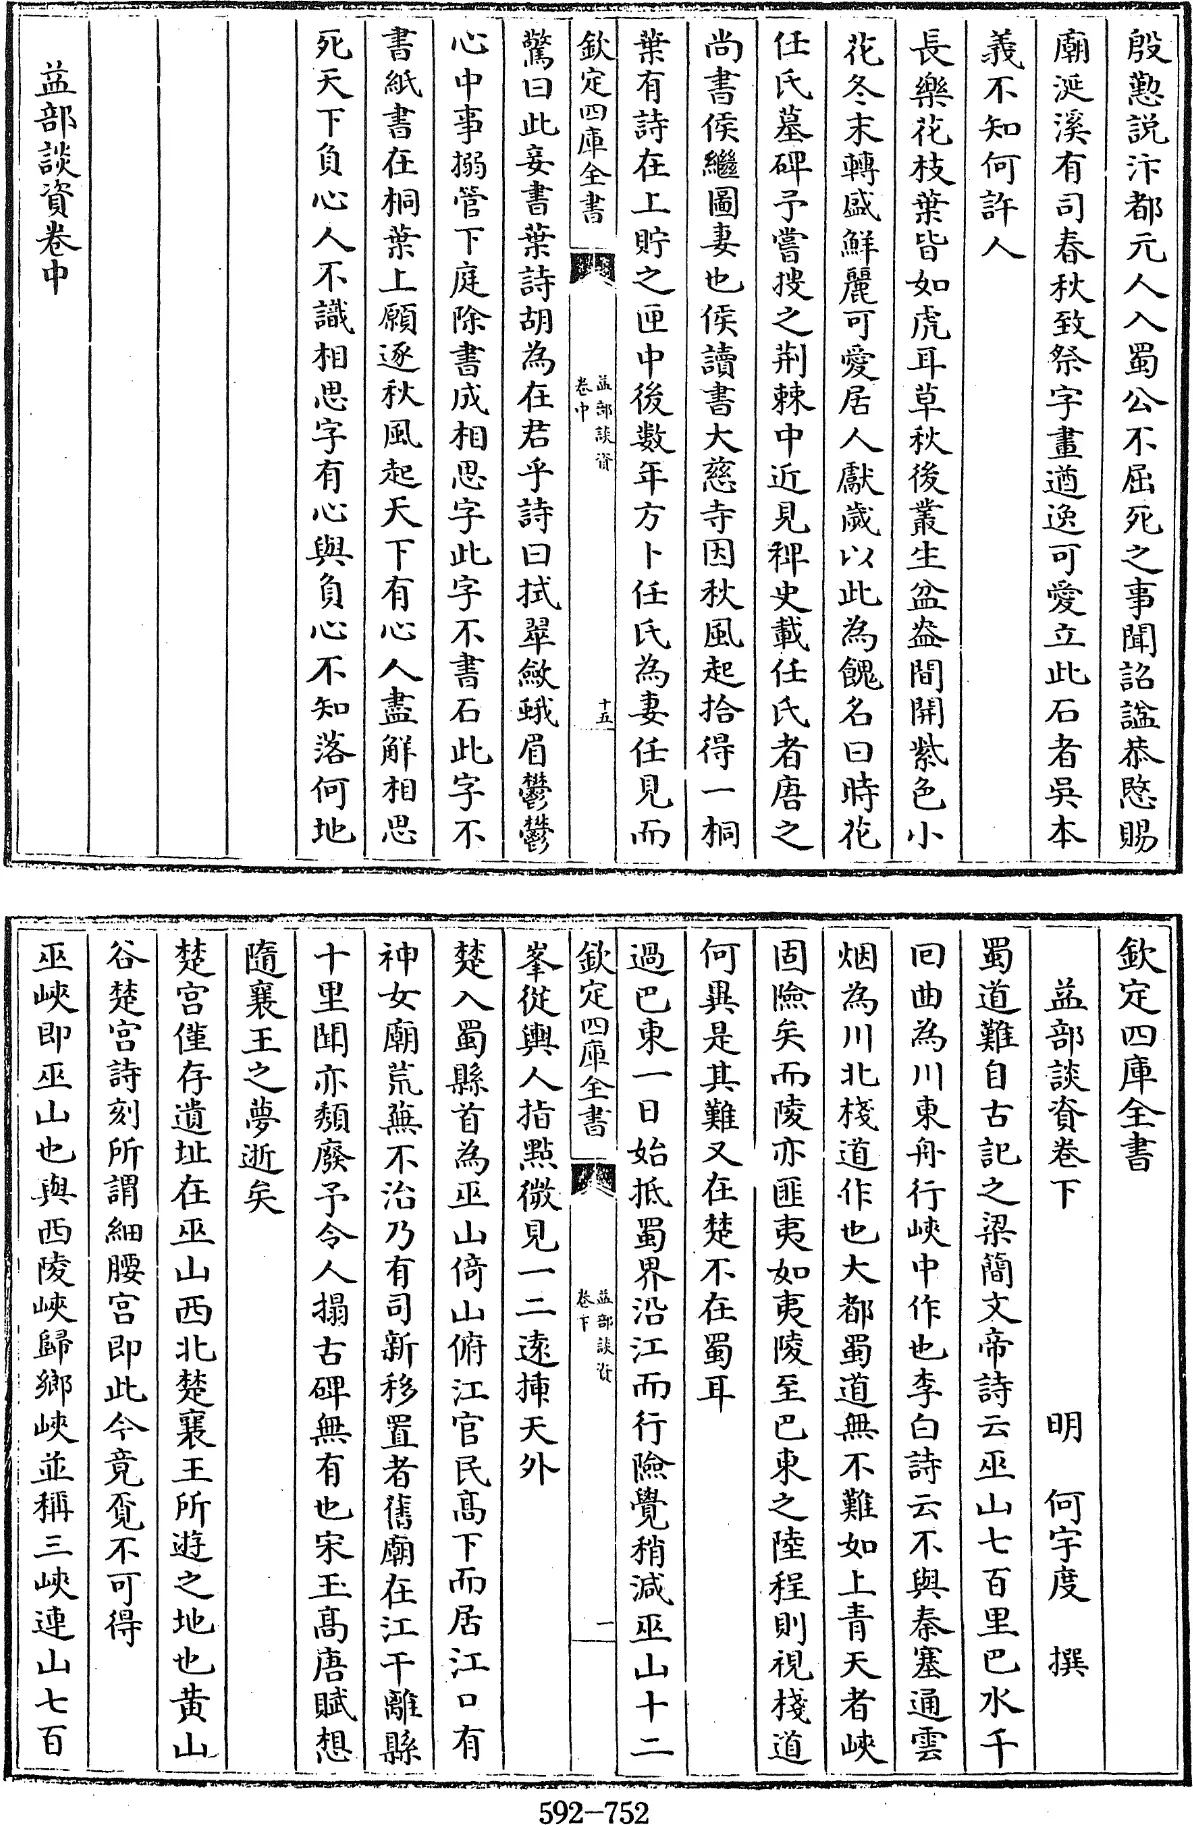 殷懃説汴都元人入蜀公不屈死之事聞詔謚恭愍賜
廟涎溪有司春秋致祭字畫遒逸可愛立此石者吳本
義不知何許人
長樂花枝葉皆如虎耳草秋後叢生盆盎間開紫色小
花冬末轉盛鮮麗可愛居人獻歲以此為餽名曰時花
任氏墓碑予嘗搜之荆棘中近見稗史載任氏者唐之
尚書侯繼圖妻也侯讀書大慈寺因秋風起拾得一桐
葉有詩在上貯之匣中後數年方卜任氏為妻任見而
欽定四庫全書
益部談資
卷中
十五
驚曰此妾書葉詩胡為在君乎詩曰拭翠斂蛾眉鬱鬱
心中事搦管下庭除書成相思字此字不書石此字不
書紙書在桐葉上願逐秋風起天下有心人盡解相思
死天下負心人不識相思字有心與負心不知落何地
益部談資卷中
欽定四庫全書
益部談資卷下
明 何宇度 撰
蜀道難自古記之梁簡文帝詩云巫山七百里巴水千
囘曲為川東舟行峽中作也李白詩云不與秦塞通雲
烟為川北棧道作也大都蜀道無不難如上青天者峽
固險矣而陵亦匪夷如夷陵至巴東之陸程則視棧道
何異是其難又在楚不在蜀耳
過巴東一日始抵蜀界沿江而行險覺稍減巫山十二
欽定四庫全書
益部談資
卷下
一
峯從輿人指點微見一二遠揷天外
楚入蜀縣首為巫山倚山俯江官民高下而居江口有
神女廟荒蕪不治乃有司新移置者舊廟在江干離縣
十里聞亦頽廢予令人搨古碑無有也宋玉高唐賦想
隨襄王之夢逝矣
楚宫僅存遺址在巫山西北楚襄王所遊之地也黄山
谷楚宫詩刻所謂細腰宫即此今竟覔不可得
巫峽即巫山也與西陵峽歸鄉峽並稱三峽連山七百
592-752